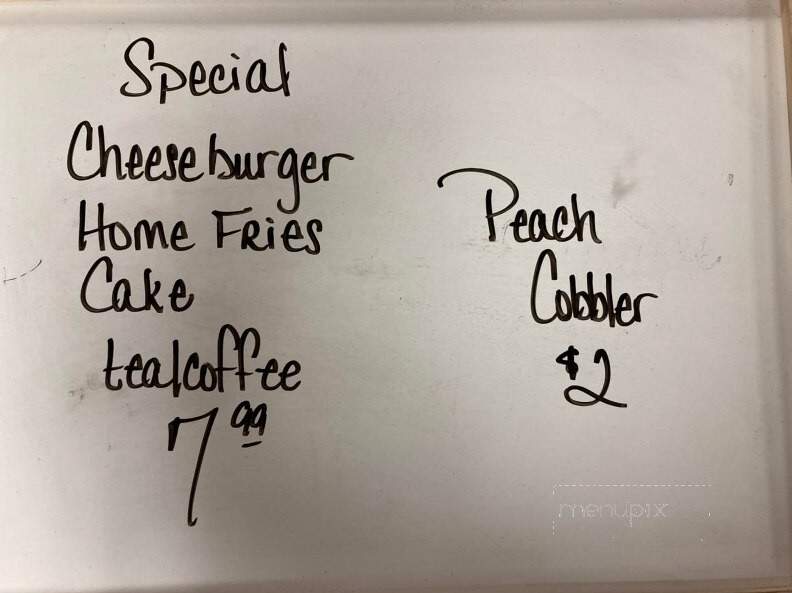 Special
Cheeseburger
Home Fries
Cake
tea/coffee
7 99
Peach
Cobbler
$2
menupix